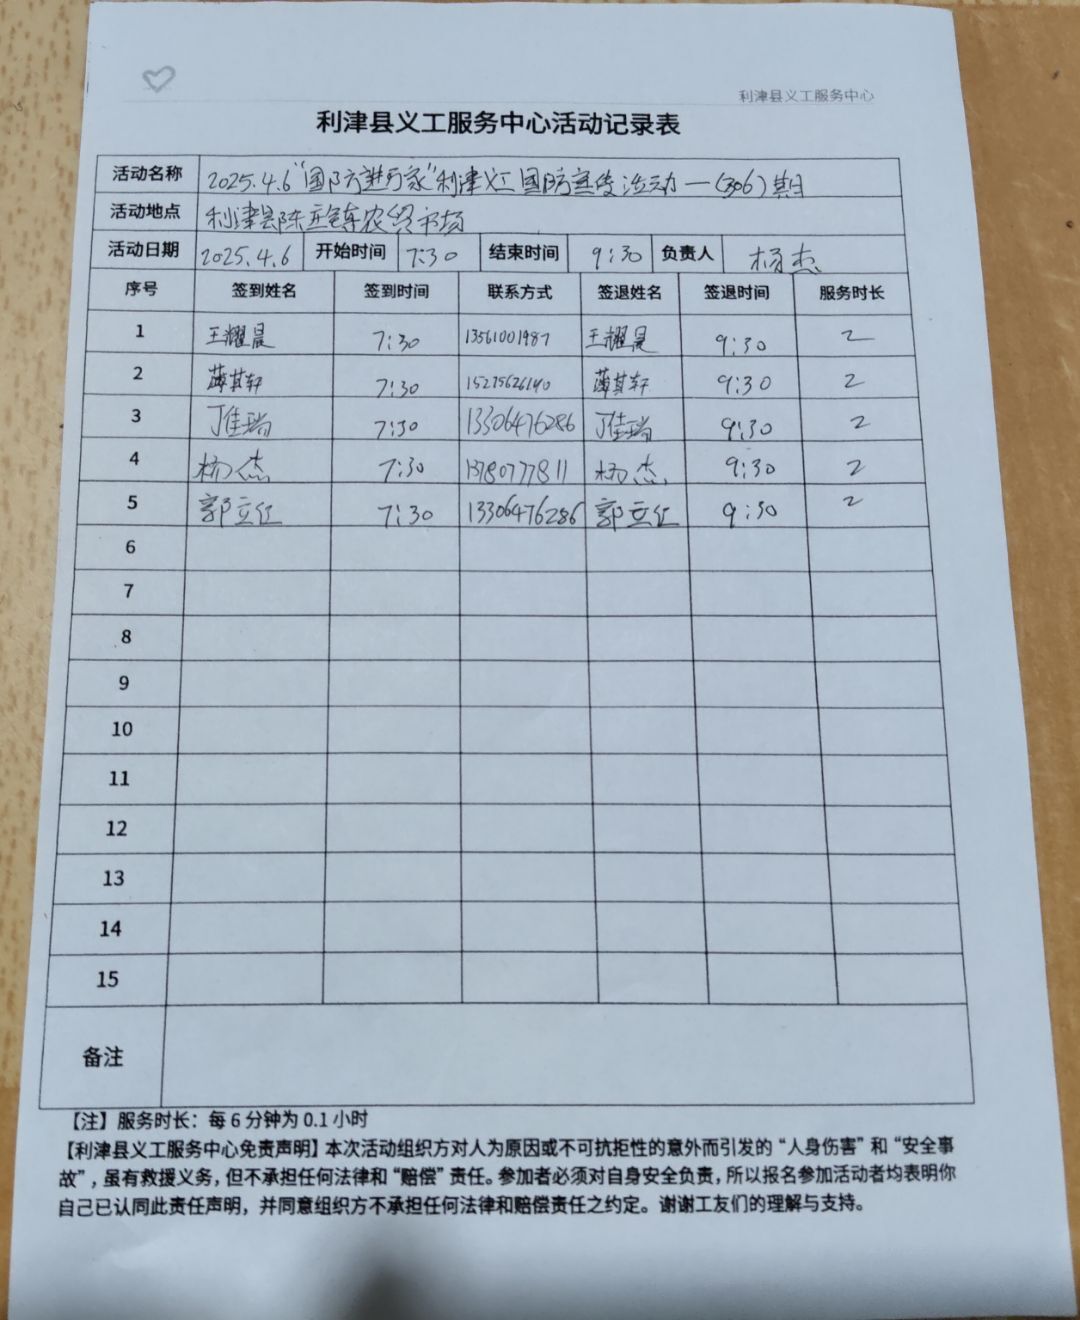 利津县义工服务中心
利津县义工服务中心活动记录表
活动名称 2025.4.6“国防进万家”利津义工国防宣传活动—(306)期
活动地点 利津县陈庄镇东农贸市场
活动日期 2025.4.6 开始时间 7:30 结束时间 9:30 负责人 杨杰
序号 签到姓名 签到时间 联系方式 签退姓名 签退时间 服务时长
1 王耀晨 7:30 13561001987 王耀晨 9:30 2
2 薄其轩 7:30 15275626140 薄其轩 9:30 2
3 丁佳瑞 7:30 13306476286 丁佳瑞 9:30 2
4 杨杰 7:30 13780777811 杨杰 9:30 2
5 郭立红 7:30 13306476286 郭立红 9:30 2
6
7
8
9
10
11
12
13
14
15
备注
【注】服务时长：每6分钟为0.1小时
【利津县义工服务中心免责声明】本次活动组织方对人为原因或不可抗拒性的意外而引发的“人身伤害”和“安全事
故”，虽有救援义务，但不承担任何法律和“赔偿”责任。参加者必须对自身安全负责，所以报名参加活动者均表明你
自己已认同此责任声明，并同意组织方不承担任何法律和赔偿责任之约定。谢谢工友们的理解与支持。